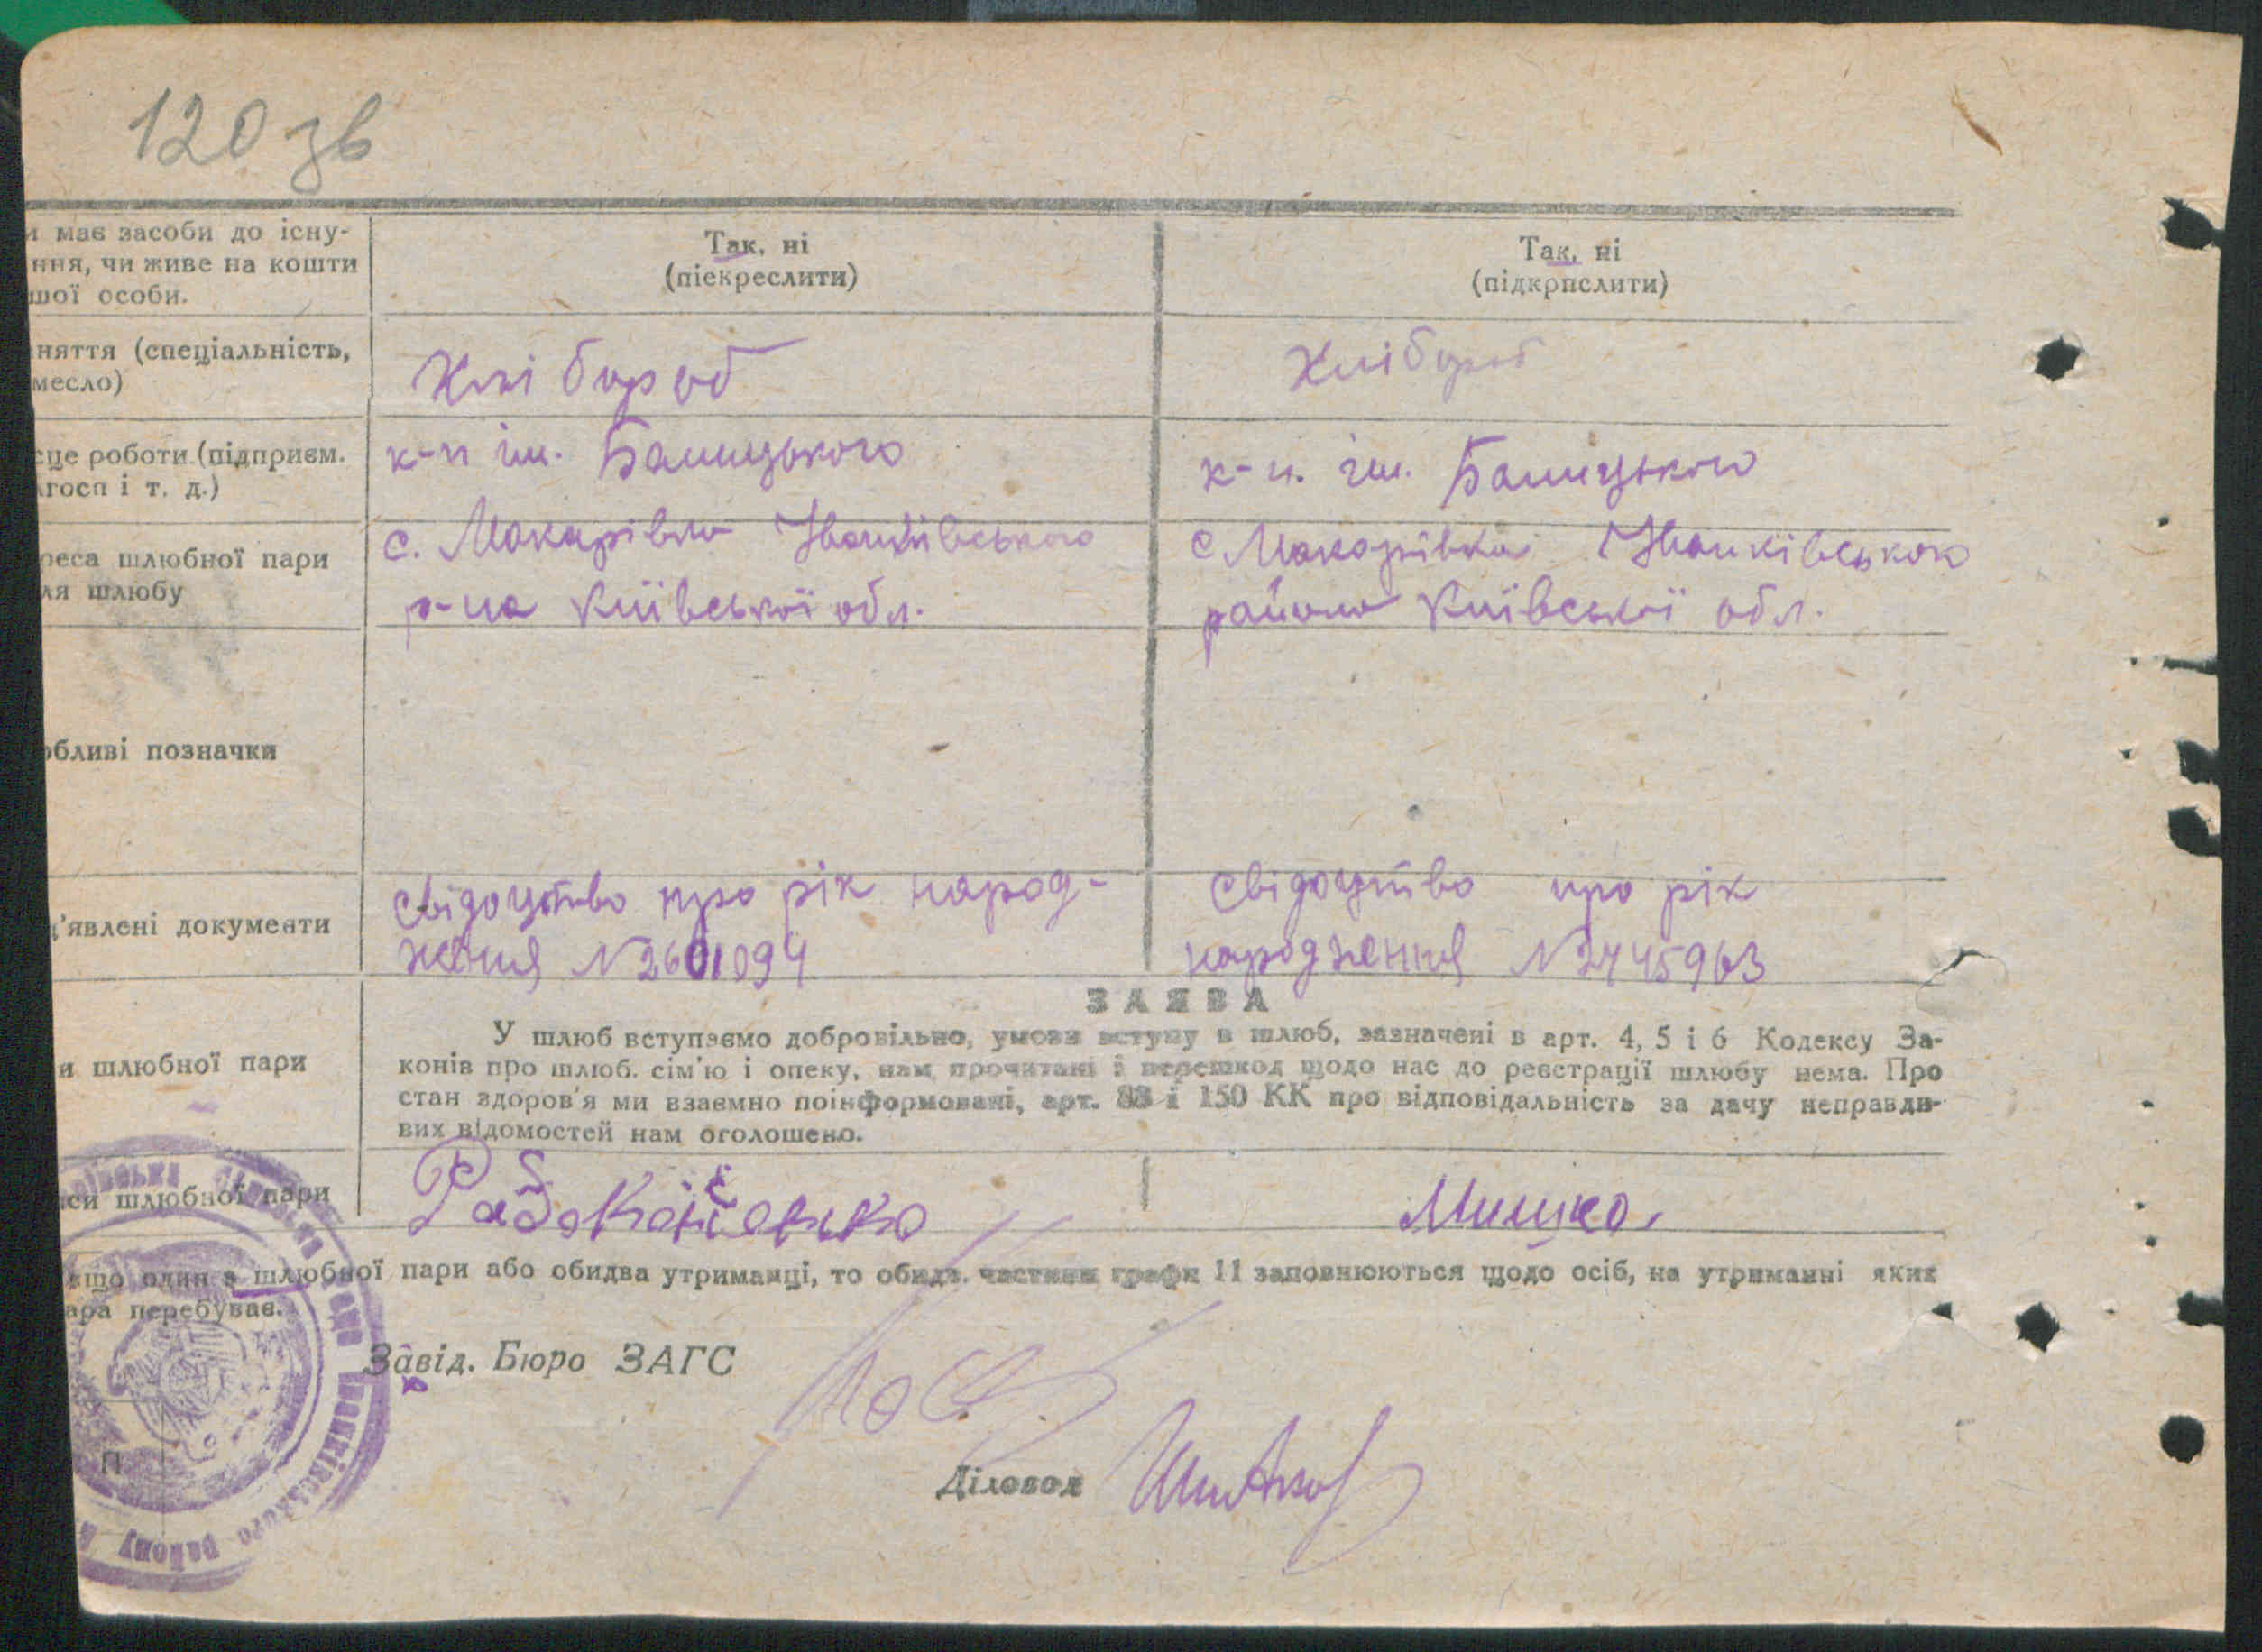 120 зв
и має засоби до існу-
ння, чи живе на кошти
шої особи.
Так, ні
(піекреслити)
Так, ні
(підкрпслити)
няття (спеціальність,
месло)
Хлібороб
Хлібороб
сце роботи (підприєм.
госп і т. д.)
к-п ім.
к-п. ім.
реса шлюбної пари
ля шлюбу
с. Макарівка Іванківського
р-на Київської обл.
с Макарівка Іванківського
району Київської обл.
обливі позначки
'явлені документи
Свідоцтво про рік народ-
ження №2601094
Свідоцтво про рік
народження №2445963
ЗАЯВА
и шлюбної пари
У шлюб вступаємо добровільно, умови вступу в шлюб, зазначені в арт. 4, 5 і 6 Кодексу За-
конів про шлюб. сім'ю і опеку, нам прочитані і перешкод щодо нас до реєстрації шлюбу нема. Про
стан здоров'я ми взаємно поінформовані, арт. 88 і 150 КК про відповідальність за дачу неправди-
вих відомостей нам оголошено.
си шлюбної пари
Мишко
кщо один з шлюбної пари або обидва утриманці, то обидв. частини графи 11 заповнюються щодо осіб, на утриманні яких
ара перебуває.
Завід. Бюро ЗАГС
Діловод
П
Іванківського району